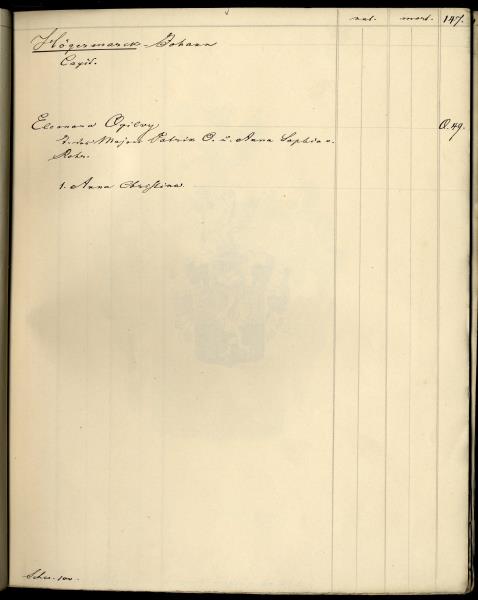 nat. mort. 147.
Högermarck Johann
Capit.
Eleonora Ogilvy O. 49.
T. des Majors Patrik O. u. Anna Sophia v.
Rohr.
1. Anna Christina.